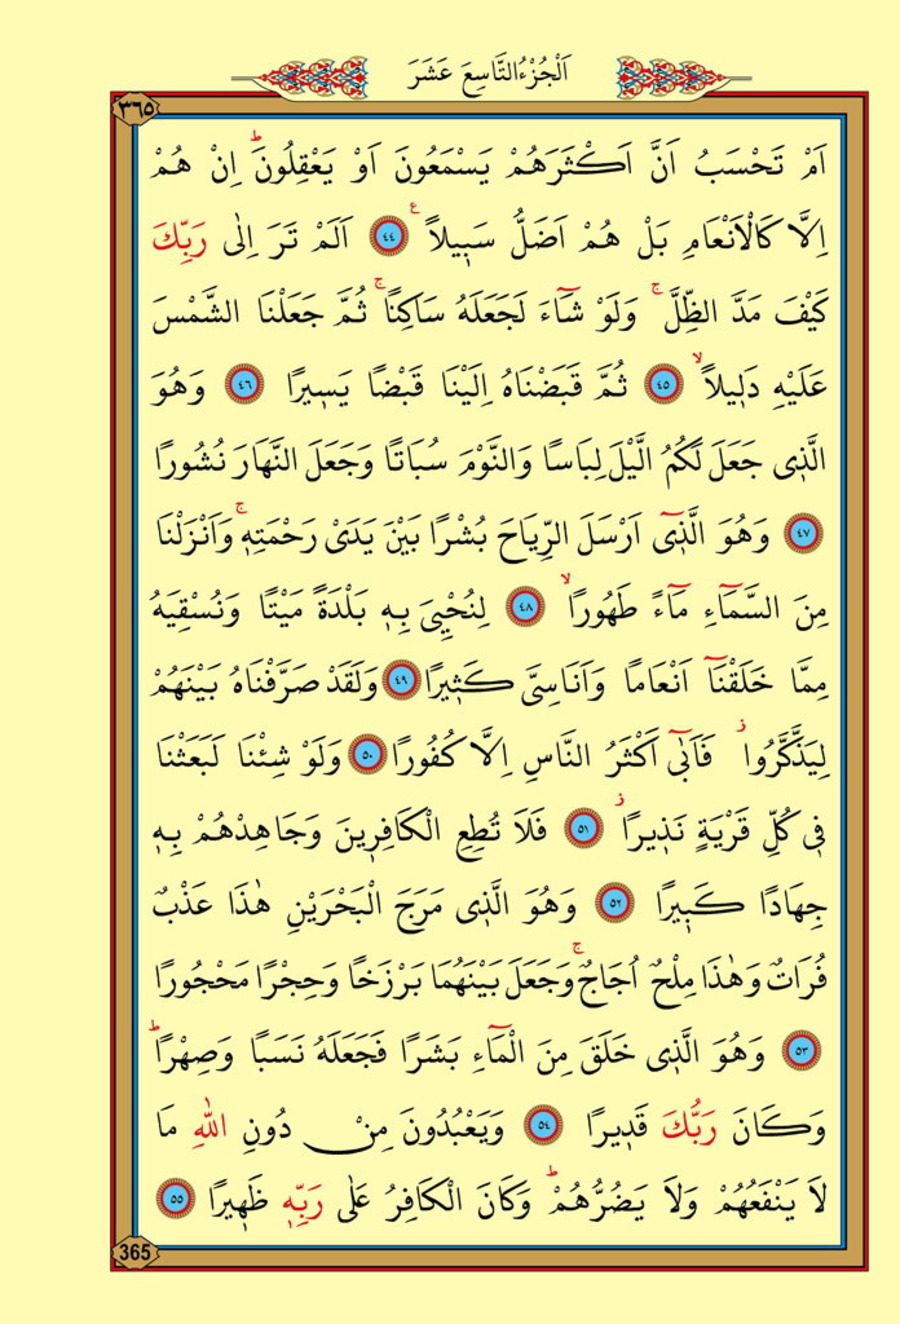 اَلْجُزْءُالتَّاسِعَ عَشَرَ
٣٦٥
اَمْ تَحْسَبُ اَنَّ اَكْثَرَهُمْ يَسْمَعُونَ اَوْ يَعْقِلُونَۜ اِنْ هُمْ
اِلَّا كَالْاَنْعَامِ بَلْ هُمْ اَضَلُّ سَب۪يلاً ع ٤٤ اَلَمْ تَرَ اِلٰى رَبِّكَ
كَيْفَ مَدَّ الظِّلَّۚ وَلَوْ شَٓاءَ لَجَعَلَهُ سَاكِنًاۚ ثُمَّ جَعَلْنَا الشَّمْسَ
عَلَيْهِ دَل۪يلاًۙ ٤٥ ثُمَّ قَبَضْنَاهُ اِلَيْنَا قَبْضًا يَس۪يرًا ٤٦ وَهُوَ
الَّذ۪ى جَعَلَ لَكُمُ الَّيْلَ لِبَاسًا وَالنَّوْمَ سُبَاتًا وَجَعَلَ النَّهَارَ نُشُورًا
٤٧ وَهُوَ الَّذ۪ٓى اَرْسَلَ الرِّيَاحَ بُشْرًا بَيْنَ يَدَىْ رَحْمَتِه۪ۚ وَاَنْزَلْنَا
مِنَ السَّمَٓاءِ مَٓاءً طَهُورًاۙ ٤٨ لِنُحْيِىَ بِه۪ بَلْدَةً مَيْتًا وَنُسْقِيَهُ
مِمَّا خَلَقْنَٓا اَنْعَامًا وَاَنَاسِىَّ كَث۪يرًا ٤٩ وَلَقَدْ صَرَّفْنَاهُ بَيْنَهُمْ
لِيَذَّكَّرُوا ز فَاَبٰٓى اَكْثَرُ النَّاسِ اِلَّا كُفُورًا ٥٠ وَلَوْ شِئْنَا لَبَعَثْنَا
ف۪ى كُلِّ قَرْيَةٍ نَذ۪يرًا ز ٥١ فَلَا تُطِعِ الْكَافِر۪ينَ وَجَاهِدْهُمْ بِه۪
جِهَادًا كَب۪يرًا ٥٢ وَهُوَ الَّذ۪ى مَرَجَ الْبَحْرَيْنِ هٰذَا عَذْبٌ
فُرَاتٌ وَهٰذَا مِلْحٌ اُجَاجٌۚ وَجَعَلَ بَيْنَهُمَا بَرْزَخًا وَحِجْرًا مَحْجُورًا
٥٣ وَهُوَ الَّذ۪ى خَلَقَ مِنَ الْمَٓاءِ بَشَرًا فَجَعَلَهُ نَسَبًا وَصِهْرًاۜ
وَكَانَ رَبُّكَ قَد۪يرًا ٥٤ وَيَعْبُدُونَ مِنْ دُونِ اللّٰهِ مَا
لَا يَنْفَعُهُمْ وَلَا يَضُرُّهُمْۜ وَكَانَ الْكَافِرُ عَلٰى رَبِّه۪ ظَه۪يرًا ٥٥
365